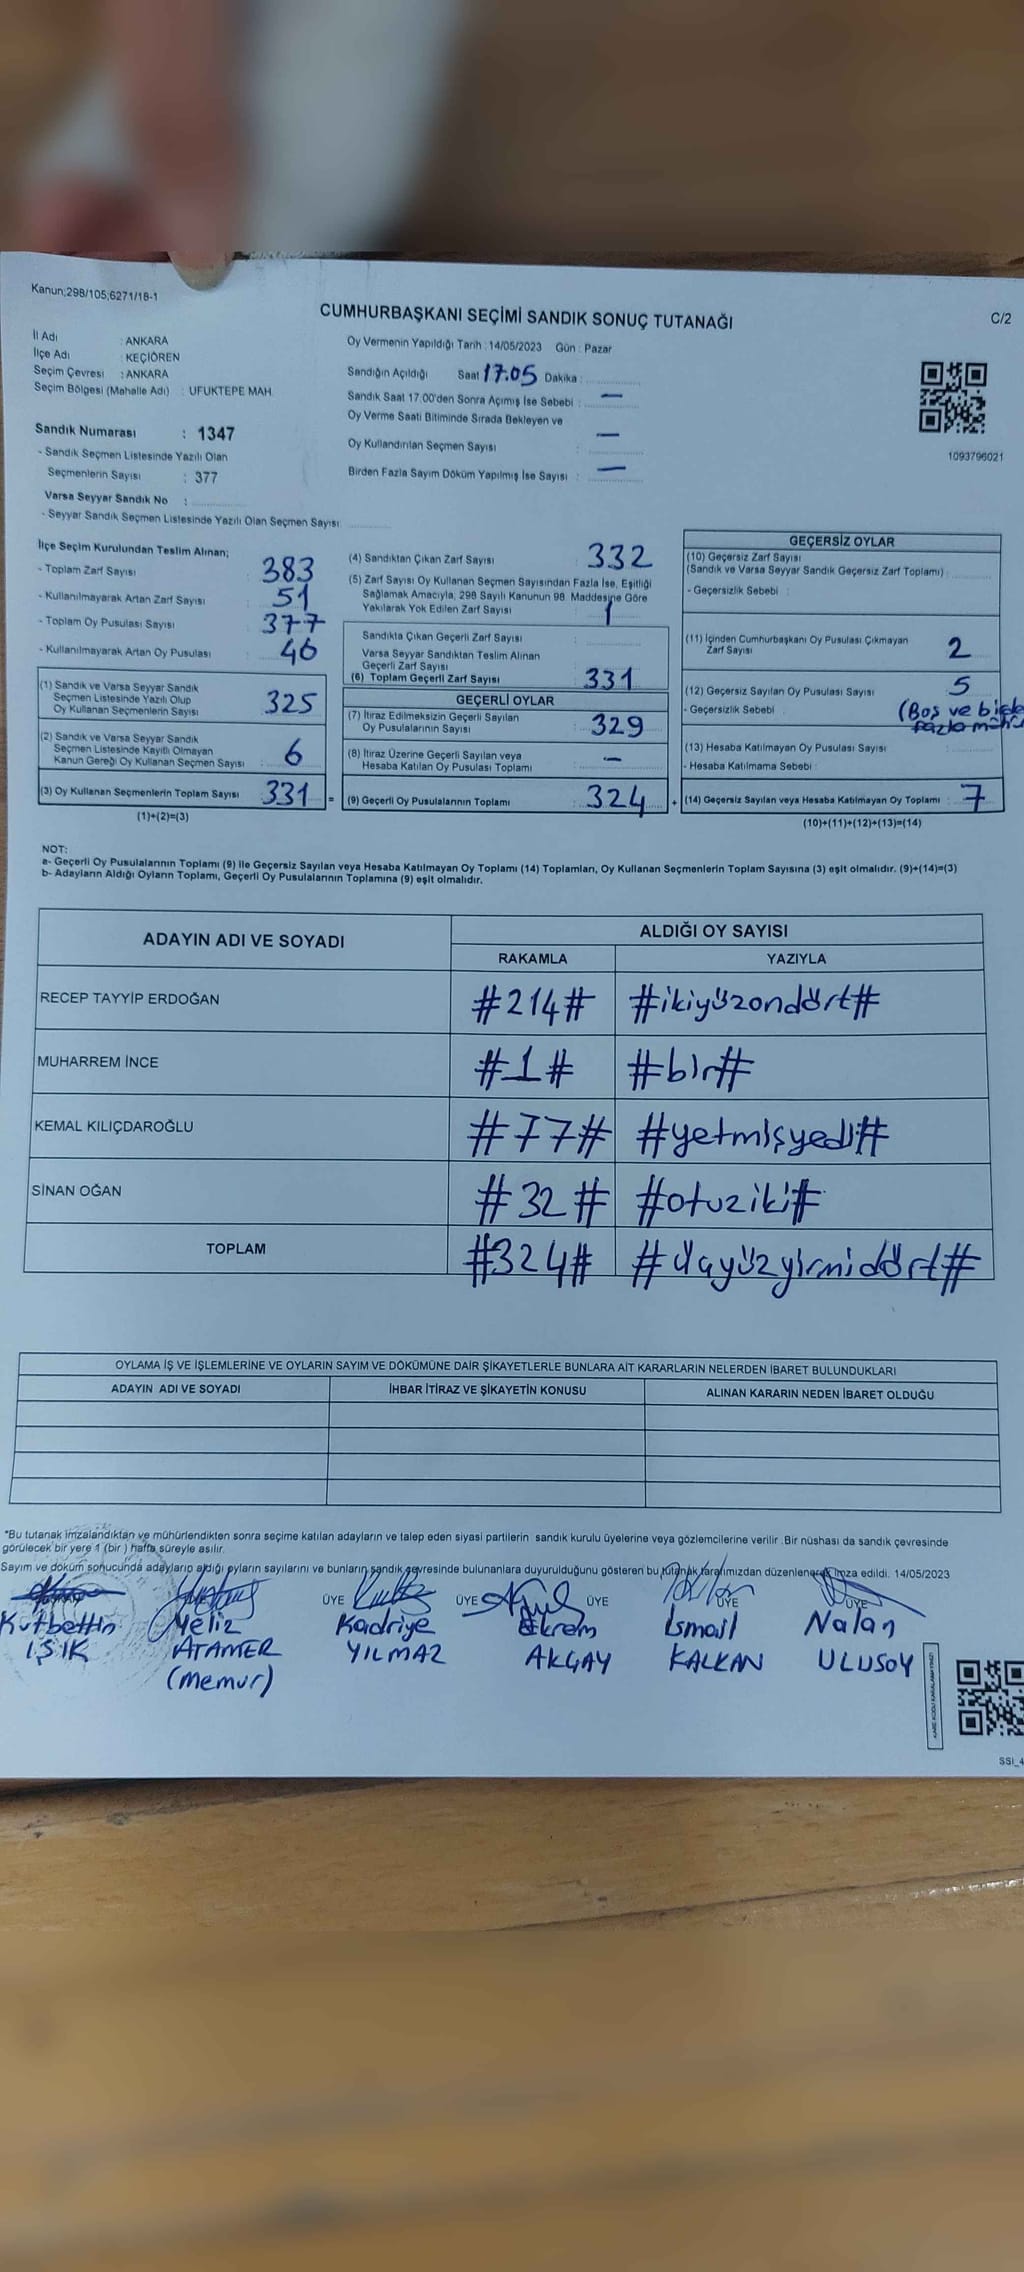 Kanun;298/105;6271/18-1
CUMHURBAŞKANI SEÇİMİ SANDIK SONUÇ TUTANAĞI
C/2
İl Adı : ANKARA
İlçe Adı : KEÇİÖREN
Seçim Çevresi : ANKARA
Seçim Bölgesi (Mahalle Adı) : UFUKTEPE MAH.
Oy Vermenin Yapıldığı Tarih : 14/05/2023 Gün : Pazar
Sandığın Açıldığı Saat 17.05 Dakika :
Sandık Saat 17.00'den Sonra Açımış İse Sebebi : —
Oy Verme Saati Bitiminde Sırada Bekleyen ve
Oy Kullandırılan Seçmen Sayısı : —
Birden Fazla Sayım Döküm Yapılmış İse Sayısı : —
1093796021
Sandık Numarası : 1347
- Sandık Seçmen Listesinde Yazılı Olan
Seçmenlerin Sayısı : 377
Varsa Seyyar Sandık No :
- Seyyar Sandık Seçmen Listesinde Yazılı Olan Seçmen Sayısı
İlçe Seçim Kurulundan Teslim Alınan;
- Toplam Zarf Sayısı : 383
- Kullanılmayarak Artan Zarf Sayısı : 51
- Toplam Oy Pusulası Sayısı : 377
- Kullanılmayarak Artan Oy Pusulası : 46
(1) Sandık ve Varsa Seyyar Sandık
Seçmen Listesinde Yazılı Olup
Oy Kullanan Seçmenlerin Sayısı : 325
(2) Sandık ve Varsa Seyyar Sandık
Seçmen Listesinde Kayıtlı Olmayan
Kanun Gereği Oy Kullanan Seçmen Sayısı : 6
(3) Oy Kullanan Seçmenlerin Toplam Sayısı : 331 =
(1)+(2)=(3)
(4) Sandıktan Çıkan Zarf Sayısı : 332
(5) Zarf Sayısı Oy Kullanan Seçmen Sayısından Fazla İse, Eşitliği
Sağlamak Amacıyla, 298 Sayılı Kanunun 98. Maddesine Göre
Yakılarak Yok Edilen Zarf Sayısı : 1
Sandıkta Çıkan Geçerli Zarf Sayısı :
Varsa Seyyar Sandıktan Teslim Alınan
Geçerli Zarf Sayısı :
(6) Toplam Geçerli Zarf Sayısı : 331
GEÇERLİ OYLAR
(7) İtiraz Edilmeksizin Geçerli Sayılan
Oy Pusulalarının Sayısı : 329
(8) İtiraz Üzerine Geçerli Sayılan veya
Hesaba Katılan Oy Pusulası Toplamı : —
(9) Geçerli Oy Pusulalarının Toplamı : 324 +
GEÇERSİZ OYLAR
(10) Geçersiz Zarf Sayısı
(Sandık ve Varsa Seyyar Sandık Geçersiz Zarf Toplamı) :
- Geçersizlik Sebebi :
(11) İçinden Cumhurbaşkanı Oy Pusulası Çıkmayan
Zarf Sayısı : 2
(12) Geçersiz Sayılan Oy Pusulası Sayısı : 5
- Geçersizlik Sebebi : (Boş ve birde
fazla mühü
(13) Hesaba Katılmayan Oy Pusulası Sayısı :
- Hesaba Katılmama Sebebi :
(14) Geçersiz Sayılan veya Hesaba Katılmayan Oy Toplamı : 7
(10)+(11)+(12)+(13)=(14)
NOT:
a- Geçerli Oy Pusulalarının Toplamı (9) ile Geçersiz Sayılan veya Hesaba Katılmayan Oy Toplamı (14) Toplamları, Oy Kullanan Seçmenlerin Toplam Sayısına (3) eşit olmalıdır. (9)+(14)=(3)
b- Adayların Aldığı Oyların Toplamı, Geçerli Oy Pusulalarının Toplamına (9) eşit olmalıdır.
ADAYIN ADI VE SOYADI ALDIĞI OY SAYISI
RAKAMLA YAZIYLA
RECEP TAYYİP ERDOĞAN #214# #ikiyüzondört#
MUHARREM İNCE #1# #bir#
KEMAL KILIÇDAROĞLU #77# #yetmişyedi#
SİNAN OĞAN #32# #otuziki#
TOPLAM #324# #üçyüzyirmidört#
OYLAMA İŞ VE İŞLEMLERİNE VE OYLARIN SAYIM VE DÖKÜMÜNE DAİR ŞİKAYETLERLE BUNLARA AİT KARARLARIN NELERDEN İBARET BULUNDUKLARI
ADAYIN ADI VE SOYADI İHBAR İTİRAZ VE ŞİKAYETİN KONUSU ALINAN KARARIN NEDEN İBARET OLDUĞU
*Bu tutanak imzalandıktan ve mühürlendikten sonra seçime katılan adayların ve talep eden siyasi partilerin sandık kurulu üyelerine veya gözlemcilerine verilir. Bir nüshası da sandık çevresinde
görülecek bir yere 1 (bir) hafta süreyle asılır.
Sayım ve döküm sonucunda adayların aldığı oyların sayılarını ve bunların sandık çevresinde bulunanlara duyurulduğunu gösteren bu tutanak tarafımızdan düzenlenerek imza edildi. 14/05/2023
ÜYE ÜYE ÜYE ÜYE ÜYE
Kutbettin Yeliz Kadriye Ekrem İsmail Nalan
IŞIK ATAMER YILMAZ AKÇAY KALKAN ULUSOY
(memur)
SSİ_4